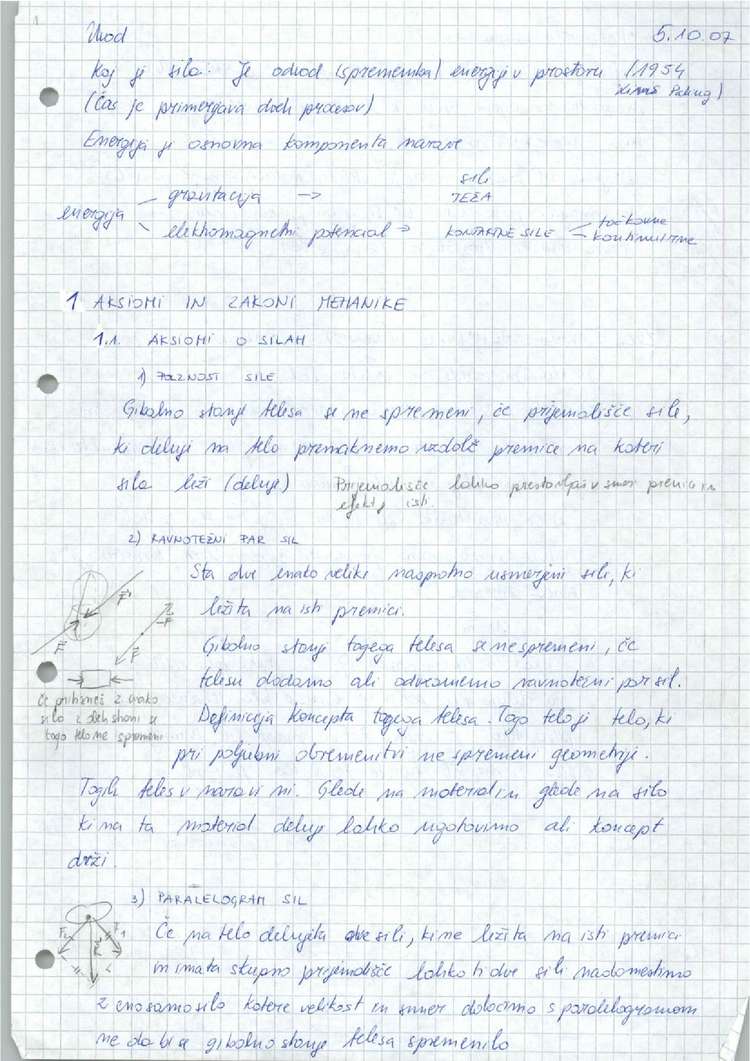 Uvod 5.10.07
Kaj je sila. Je odvod (sprememba) energije v prostoru (1954
Linus Pauling)
(Čas je primerjava dveh procesov)
Energija je osnovna komponenta narave
sile
energija gravitacija → TEŽA
elektromagnetni potencial → KONTAKTNE SILE točkovne
kontinuirne
1 AKSIOMI IN ZAKONI MEHANIKE
1.1. AKSIOMI O SILAH
1) POLZNOST SILE
Gibalno stanje telesa se ne spremeni, če prijemališče sile,
ki deluje na telo premaknemo vzdolž premice na kateri
sila leži (deluje) Prijemališče lahko prestavljaš v smeri premice in
efekt je isti.
2) RAVNOTEŽNI PAR SIL
Sta dve enako veliki nasprotno usmerjeni sili, ki
ležita na isti premici.
Gibalno stanje togega telesa se ne spremeni, če
telesu dodamo ali odvzamemo ravnotežni par sil.
F F' -F F
Če pritisneš z enako
silo z obeh strani se
togo telo ne spremeni
Definicija koncepta togega telesa. Togo telo je telo, ki
pri poljubni obremenitvi ne spremeni geometrije.
Togih teles v naravi ni. Glede na material in glede na silo
ki na ta material deluje lahko ugotovimo ali koncept
drži.
3) PARALELOGRAM SIL
F2 F1 R
Če na telo delujeta dve sili, ki ne ležita na isti premici
in imata skupno prijemališče lahko ti dve sili nadomestimo
z eno samo silo katere velikost in smer določimo s paralelogramom
ne da bi se gibalno stanje telesa spremenilo